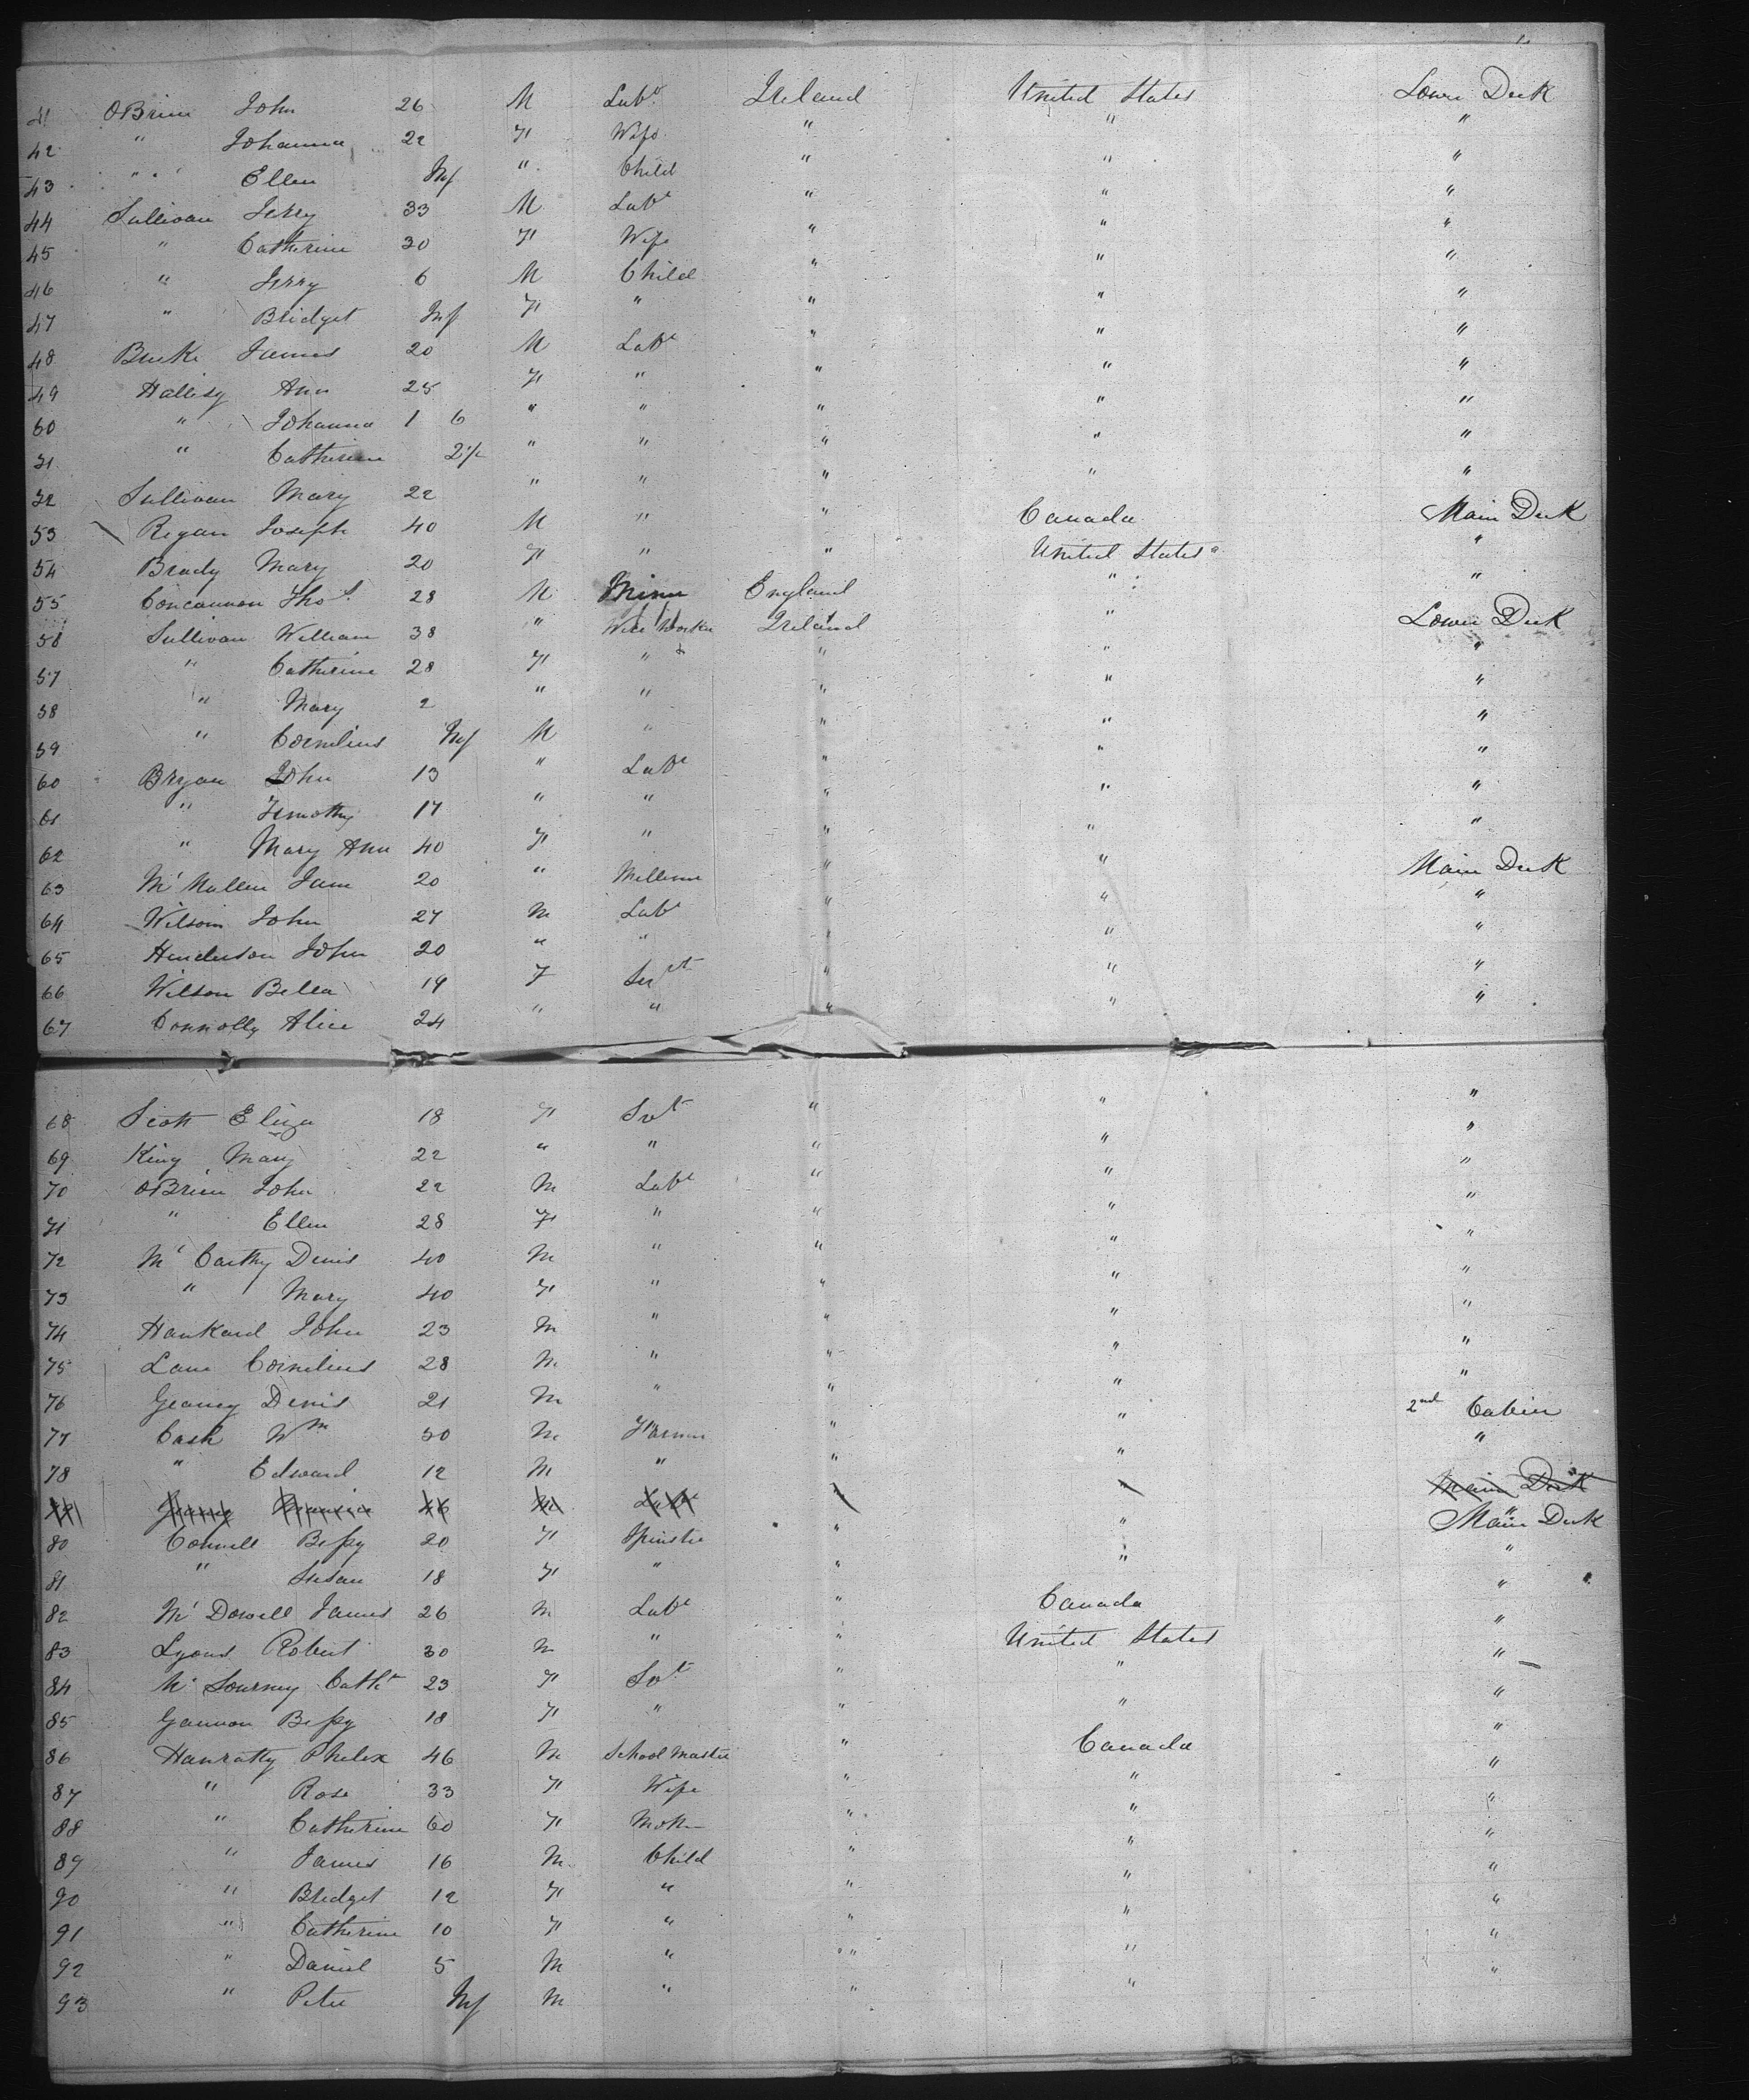 41 OBrien John 26 M Labr Ireland United States Lower Deck
42 " Johanna 22 F Wife " " "
43 " Ellen Inf " Child " " "
44 Sullivan Jerry 33 M Labr " " "
45 " Catherine 30 F Wife " " "
46 " Jerry 6 M Child " " "
47 " Bridget Inf F " " " "
48 Burke James 20 M Labr " " "
49 Hallisy Ann 25 F " " " "
50 " Johanna 1 6 " " " " "
51 " Catherine " " " " "
52 Sullivan Mary 22 " " " " "
53 Regan Joseph 40 M " " Canada Main Deck
54 Brady Mary 20 F " " United States "
55 Concannon Thos 28 M Miner England " "
56 Sullivan William 38 " Wire Worker Ireland " Lower Deck
57 " Catherine 28 F " " " "
58 " Mary 2 " " " " "
59 " Cornelius Inf M " " " "
60 Bryan John 13 " Labr " " "
61 " Timothy 17 " " " " "
62 " Mary Ann 40 F " " " "
63 Mc Mullen Jane 20 " " " Main Deck
64 Wilson John 27 M Labr " " "
65 Henderson John 20 " " " " "
66 Wilson Bella 19 F Servt " " "
67 Connolly Alice 24 " " " " "
68 Scott Eliza 18 F Svt " " "
69 King Mary 22 " " " " "
70 OBrien John 22 M Labr " " "
71 " Ellen 28 F " " " "
72 Mc Carthy Denis 40 M " " " "
73 " Mary 40 F " " " "
74 Hankard John 23 M " " " "
75 Lane Cornelius 28 M " " " "
76 Geaney Denis 21 M " " " "
77 Cash Wm 50 M Farmer " " 2nd Cabin
78 " Edward 12 M " " " "
46 M Labr Main Deck
80 Connell Bessy 20 F Spinster " " Main Deck
81 " Susan 18 F " " " "
82 Mc Dowell James 26 M Labr " Canada "
83 Lyons Robert 30 M " " United States "
84 Cathr 23 F Svt " " "
85 Gannon Bessy 18 F " " " "
86 Hanratty Phelix 46 M School Master " Canada "
87 " Rose 33 F Wife " " "
88 " Catherine 60 F Mother " " "
89 " James 16 M Child " " "
90 " Bridget 12 F " " " "
91 " Catherine 10 F " " " "
92 " Daniel 5 M " " " "
93 " Peter Inf M " " "